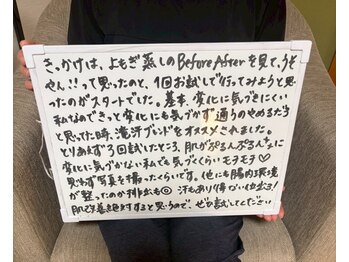 きっかけは、よもぎ蒸しのBefore Afterを見て、うそ
やん!!って思ったのと、1回お試しで行ってみようと思
ったのがスタートでした。基本、変化に気づきにくい
私なのできっと変化にも気づかず通うのやめるだろ
と思ってた時、滝汗ブレンドをオススメされました。
とりあえず3回試したところ、肌がぷるんぷるん♪に
変化に気づかない私でも気づくくらいモチモチ♡
思わず写真を撮ったくらいです。他にも腸内環境
が整ったのか排出も◎ 汗もあり得ない位出る!
肌改善絶対すると思うので、ぜひ試してください